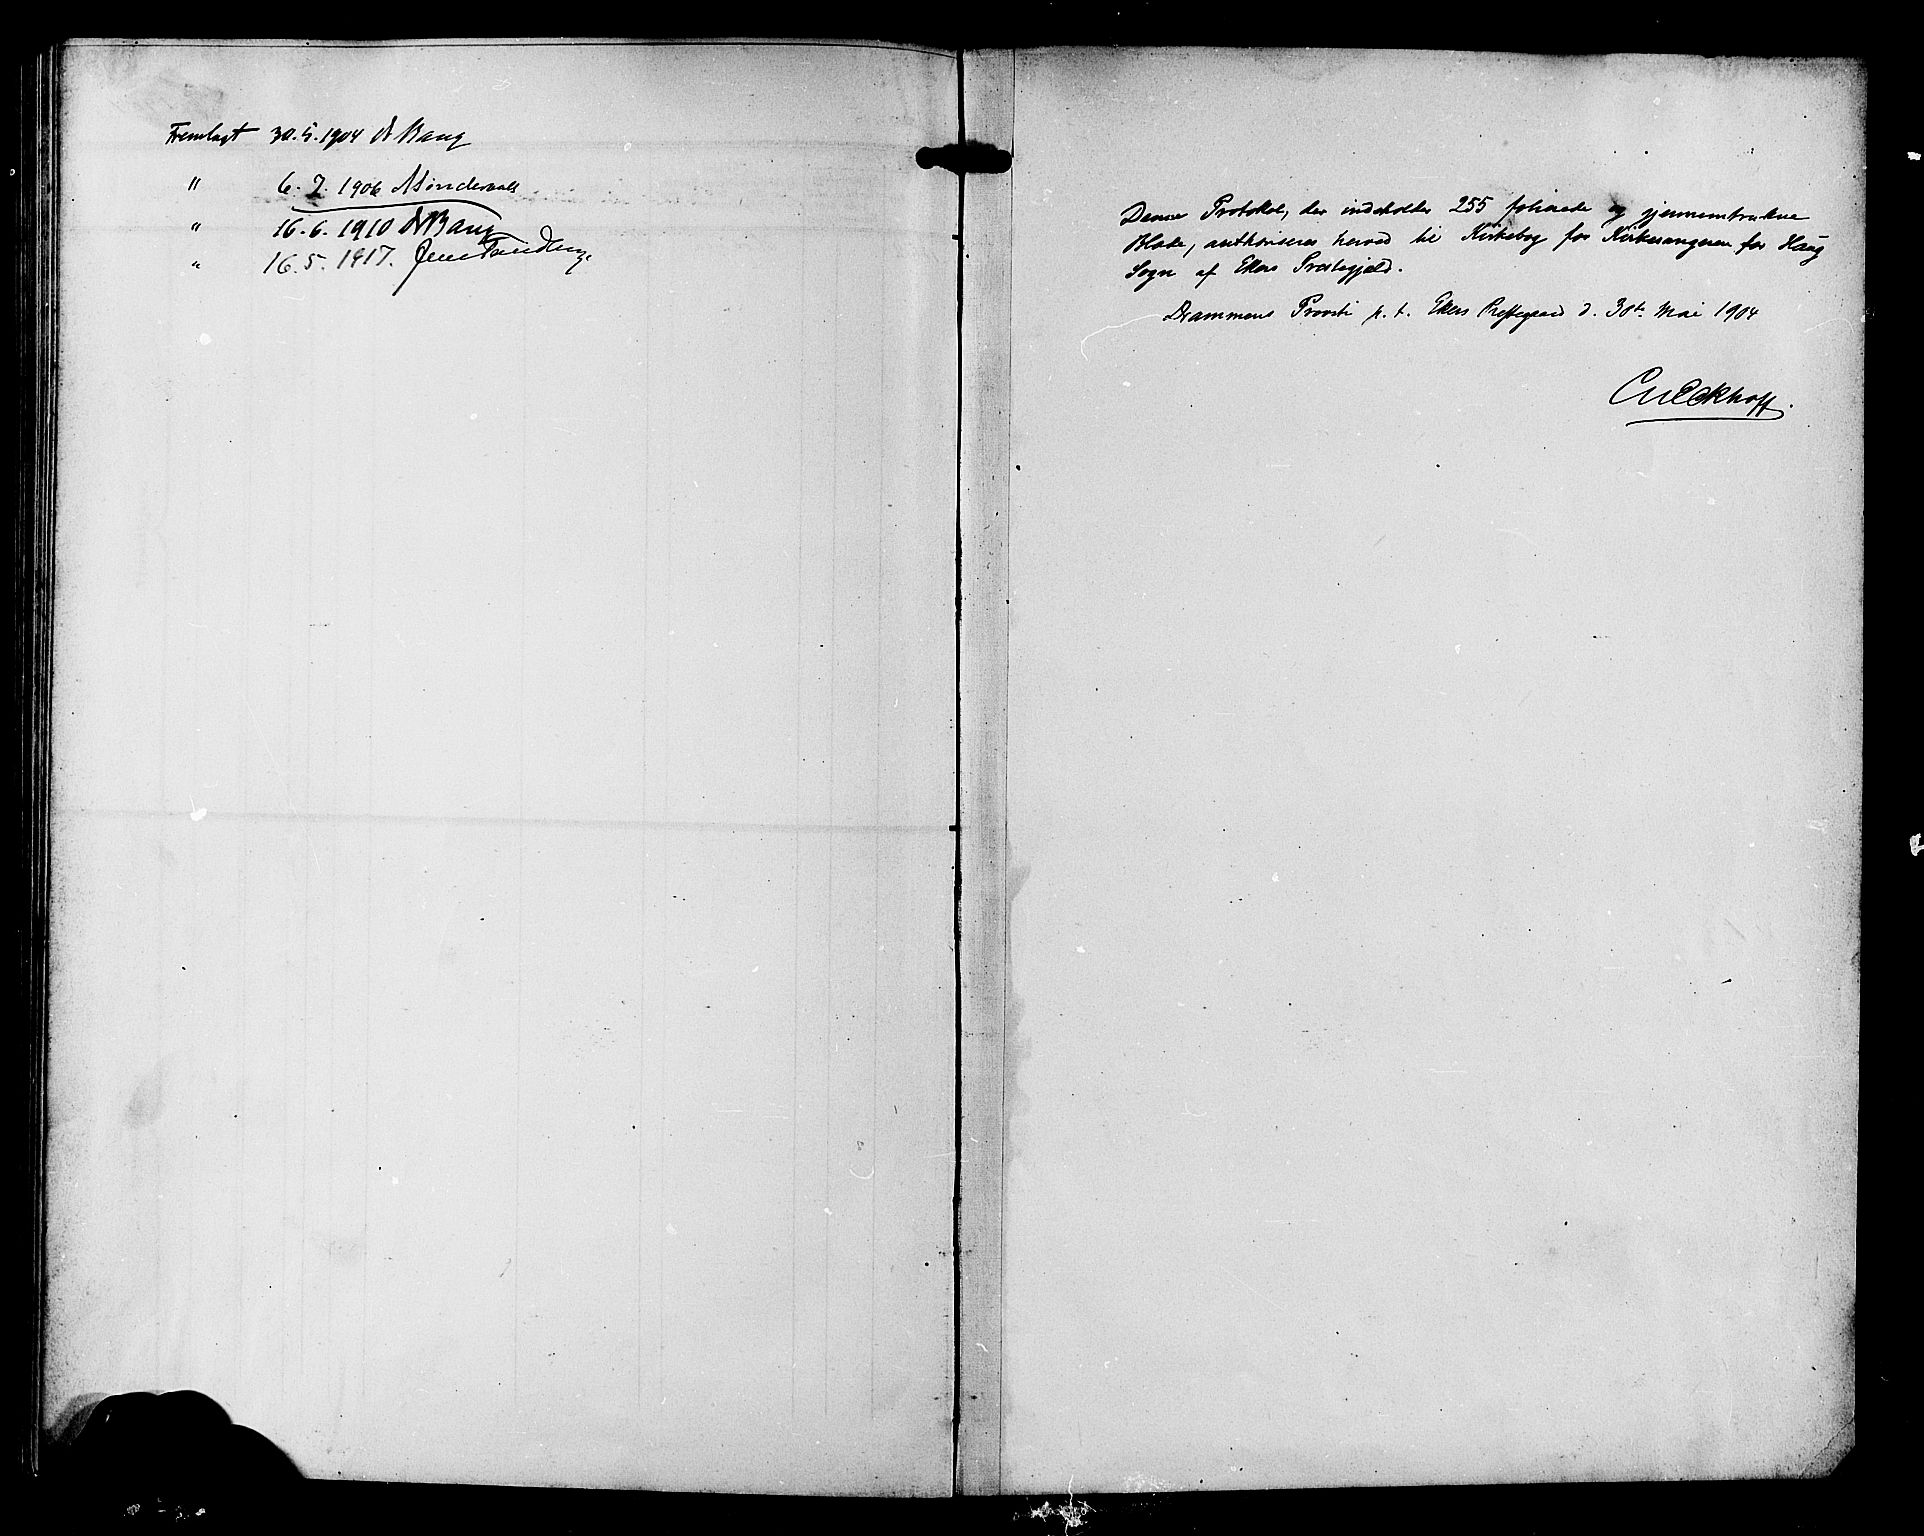 Fremlagt 30.5.1904 A Bang
" 6.7.1906
" 16.6.1910 A Bang
" 16.5.1917. Jens
Denne Protokol, der indeholder 255 folierede og gjennemtrukne
Blade, authoriseres herved til Kirkebog for Kirkesangeren for Haug
Sogn af Ekers Præstegjeld.
Drammens Provsti p. t. Ekers Prestegaard d. 30te Mai 1904
Eckhoff.